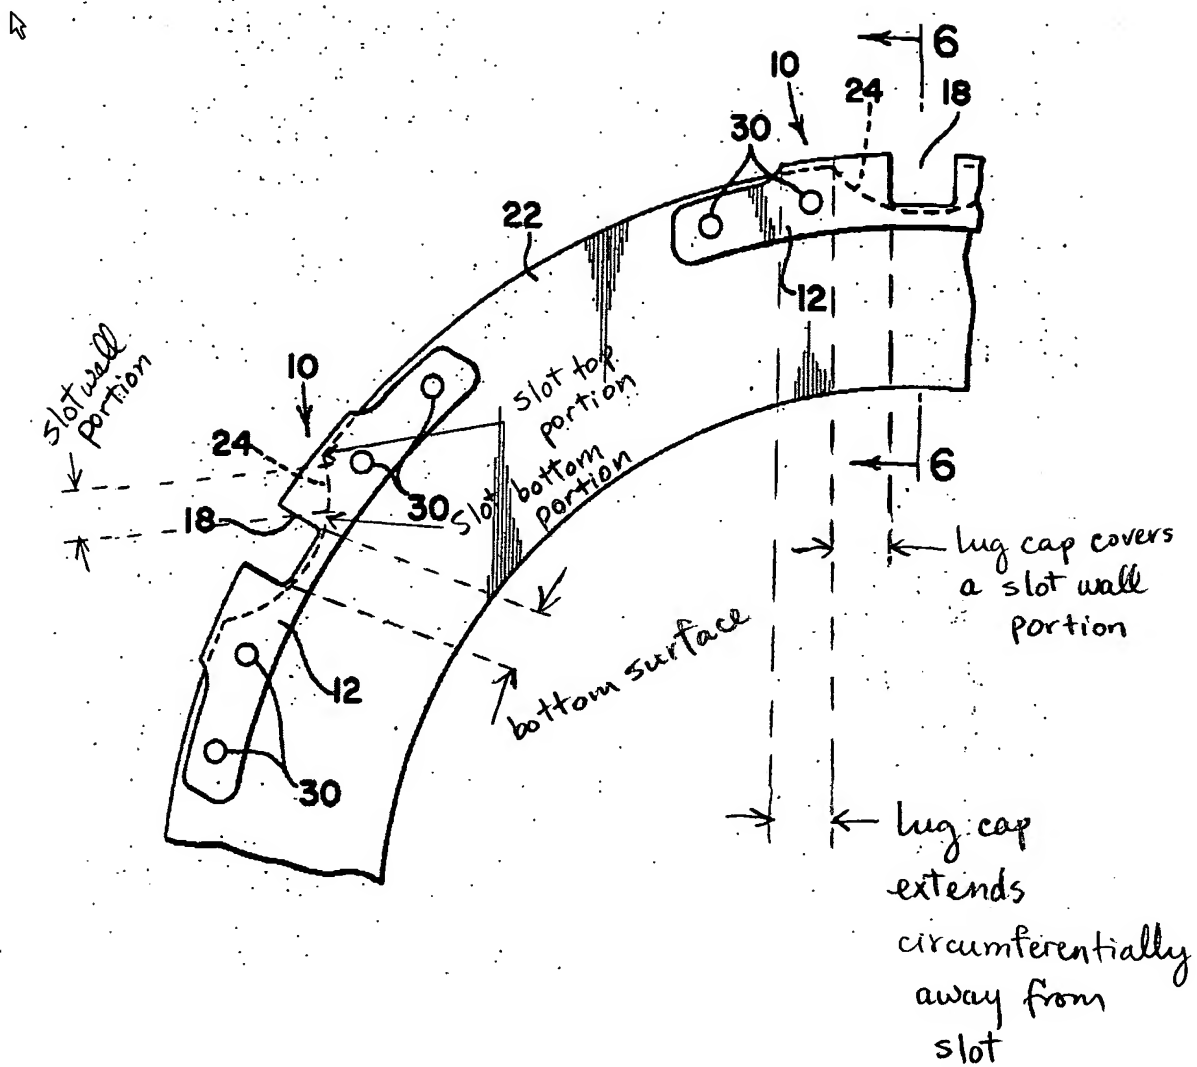 6
10
24
18
30
22
12
slot wall
portion
10
slot top
portion
24
slot bottom
portion
30
18
6
lug cap covers
a slot wall
portion
bottom surface
12
30
lug cap
extends
circumferentially
away from
slot